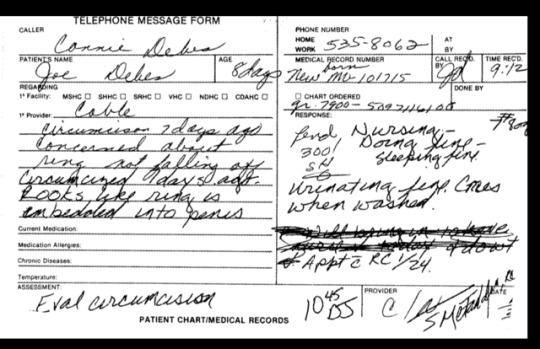 TELEPHONE MESSAGE FORM
CALLER
Connie Debes
PHONE NUMBER
HOME
WORK 535-8062
AT
BY
PATIENT'S NAME
Joe Debes
AGE
8 days
MEDICAL RECORD NUMBER
New born M-101715
CALL REC'D.
BY Jd
TIME REC'D.
9:12
REGARDING
1° Facility: MSHC ☐ SHHC ☐ SRHC ☐ VHC ☐ NDHC ☐ CDAHC ☐
☐ CHART ORDERED
DONE BY
1° Provider: Cable
circumcison 7 days ago
concerned about
ring not falling off
Circumcized 7 days ago.
LOOKS like ring is
embedded into penis
RESPONSE:
Nursing -
Doing fine -
sleeping fine.
Urinating fine. Cries
when washed.
Appt c RC 1/24.
Current Medication:
Medication Allergies:
Chronic Diseases:
Temperature:
ASSESSMENT:
Eval circumcision
10 45
DJ
PROVIDER
DATE
PATIENT CHART/MEDICAL RECORDS